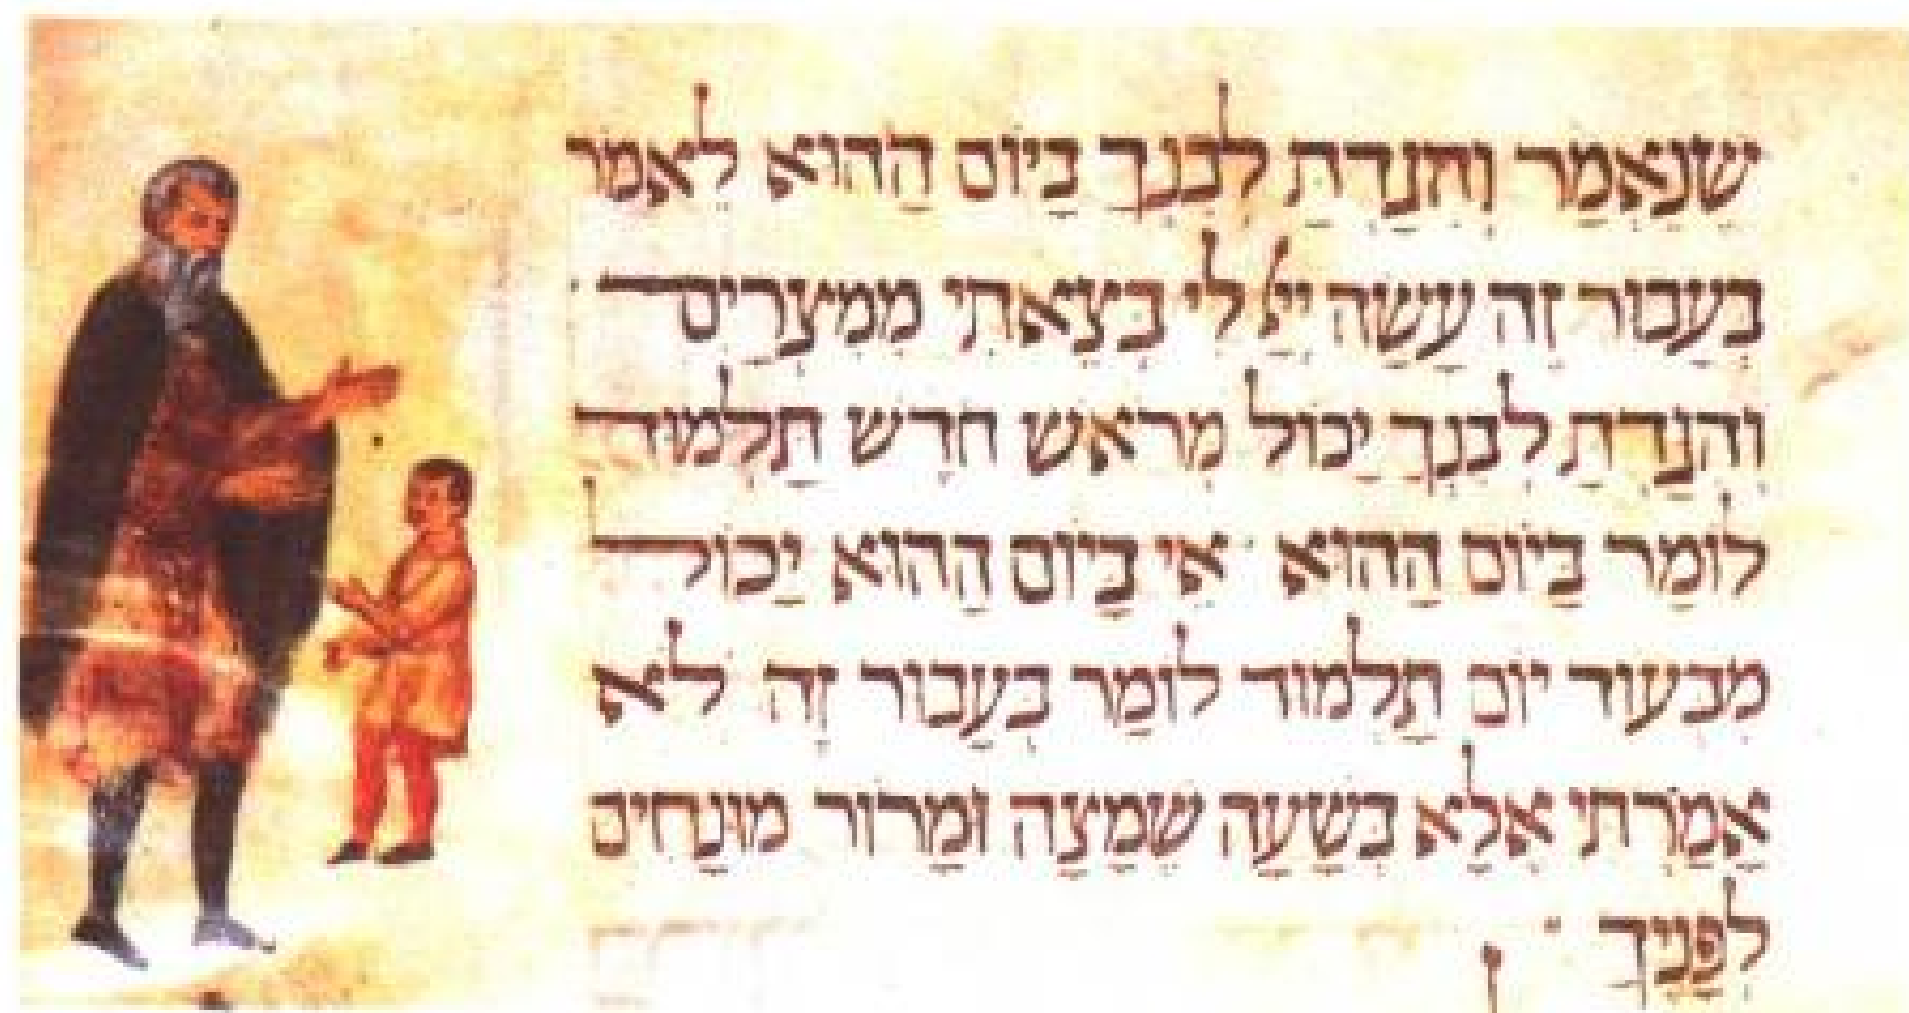 שֶׁנֶּאְמַר וְהִגַּדְתָּ לְבִנְךָ בַּיּוֹם הַהוּא לֵאמֹר
בַּעֲבוּר זֶה עָשָׂה יְיָ לִי בְּצֵאתִי מִמִּצְרָיִם
וְהִגַּדְתָּ לְבִנְךָ יָכוֹל מֵרֹאשׁ חֹדֶשׁ תַּלְמוּד
לוֹמַר בַּיּוֹם הַהוּא · אִי בַּיּוֹם הַהוּא יָכוֹל
מִבְּעוֹד יוֹם תַּלְמוּד לוֹמַר בַּעֲבוּר זֶה לֹא
אָמַרְתִּי אֶלָּא בְּשָׁעָה שֶׁמַּצָּה וּמָרוֹר מוּנָּחִים
לְפָנֶיךָ